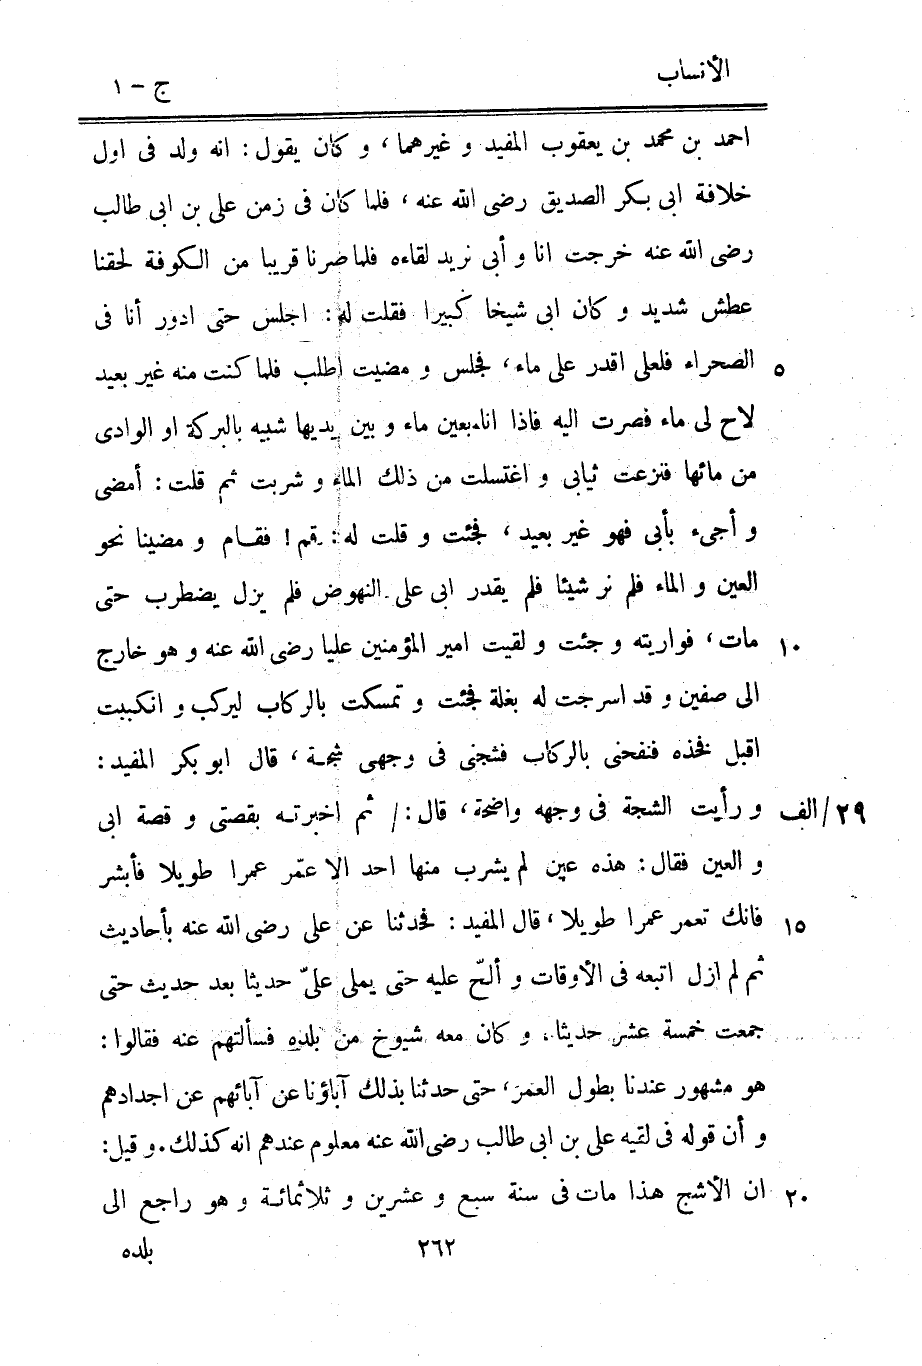 الأنساب
ج - ١
احمد بن محمد بن يعقوب المفيد و غيرهما، و كان يقول: انه ولد فى اول
خلافة ابى بكر الصديق رضى الله عنه، فلما كان فى زمن على بن ابى طالب
رضى الله عنه خرجت انا و أبى نريد لقاءه فلما صرنا قريبا من الكوفة لحقنا
عطش شديد و كان ابى شيخا كبيرا فقلت له: اجلس حتى ادور أنا فى
الصحراء فلعلى اقدر على ماء، فجلس و مضيت اطلب فلما كنت منه غير بعيد ٥
لاح لى ماء فصرت اليه فاذا انا بعين ماء و بين يديها شبيه بالبركة او الوادى
من مائها فنزعت ثيابى و اغتسلت من ذلك الماء و شربت ثم قلت: أمضى
و أجىء بأبى فهو غير بعيد، فجئت و قلت له: قم! فقام و مضينا نحو
العين و الماء فلم نر شيئا فلم يقدر ابى على النهوض فلم يزل يضطرب حتى
مات، فواريته و جئت و لقيت امير المؤمنين عليا رضى الله عنه و هو خارج ١٠
الى صفين و قد اسرجت له بغلة فجئت و تمسكت بالركاب ليركب و انكببت
اقبل فخذه فنفحنى بالركاب فشجنى فى وجهى شجة، قال ابو بكر المفيد:
٢٩/الف و رأيت الشجة فى وجهه واضحة، قال:/ ثم اخبرته بقصتى و قصة ابى
و العين فقال: هذه عين لم يشرب منها احد الا عمّر عمرا طويلا فأبشر
فانك تعمر عمرا طويلا، قال المفيد: فحدثنا عن على رضى الله عنه بأحاديث ١٥
ثم لم ازل اتبعه فى الأوقات و ألحّ عليه حتى يملى علىّ حديثا بعد حديث حتى
جمعت خمسة عشر حديثا، و كان معه شيوخ من بلده فسألتهم عنه فقالوا:
هو مشهور عندنا بطول العمر، حتى حدثنا بذلك آباؤنا عن آبائهم عن اجدادهم
و أن قوله فى لقيه على بن ابى طالب رضى الله عنه معلوم عندهم انه كذلك. و قيل:
ان الأشج هذا مات فى سنة سبع و عشرين و ثلاثمائة و هو راجع الى ٢٠
٢٦٢
بلده